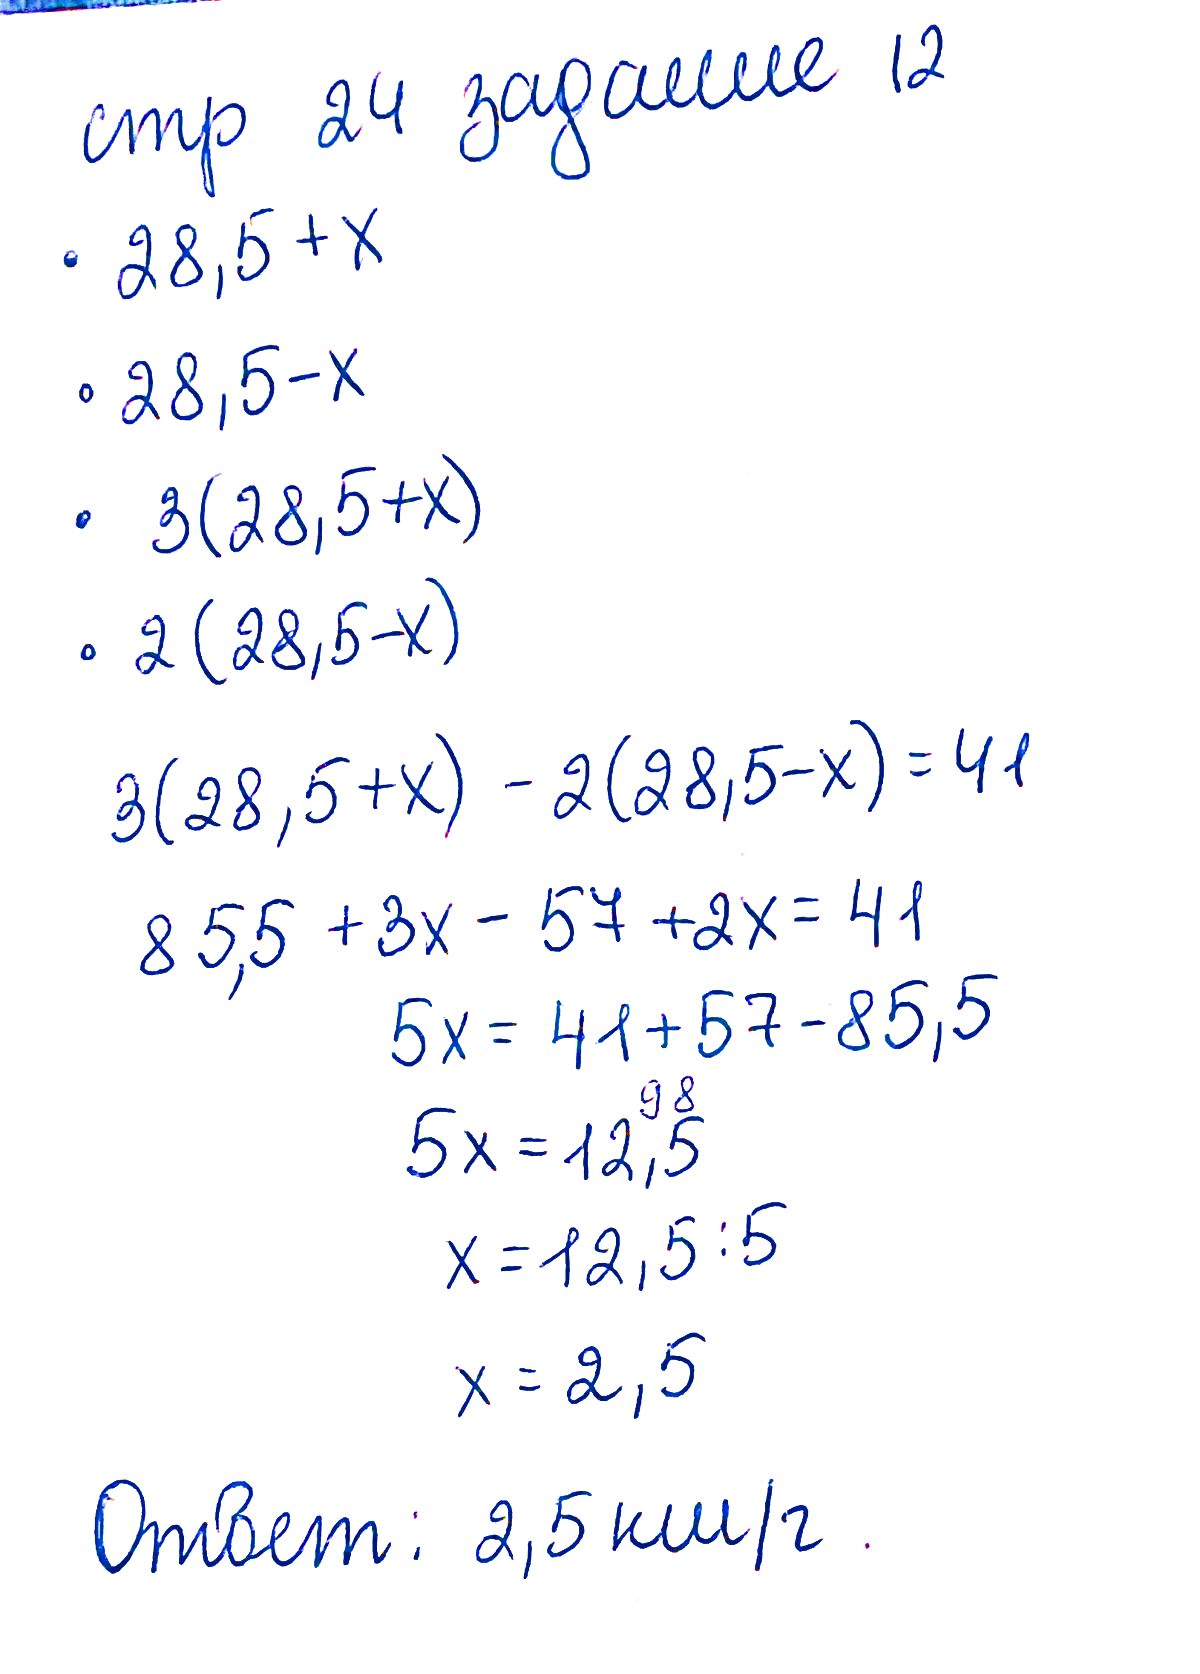 стр 24 задание 12
• 28,5+x
• 28,5-x
• 3(28,5+x)
• 2(28,5-x)
3(28,5+x) - 2(28,5-x) = 41
85,5 + 3x - 57 + 2x = 41
5x = 41 + 57 - 85,5
98
5x = 12,5
x = 12,5 : 5
x = 2,5
Ответ: 2,5 км/ч.